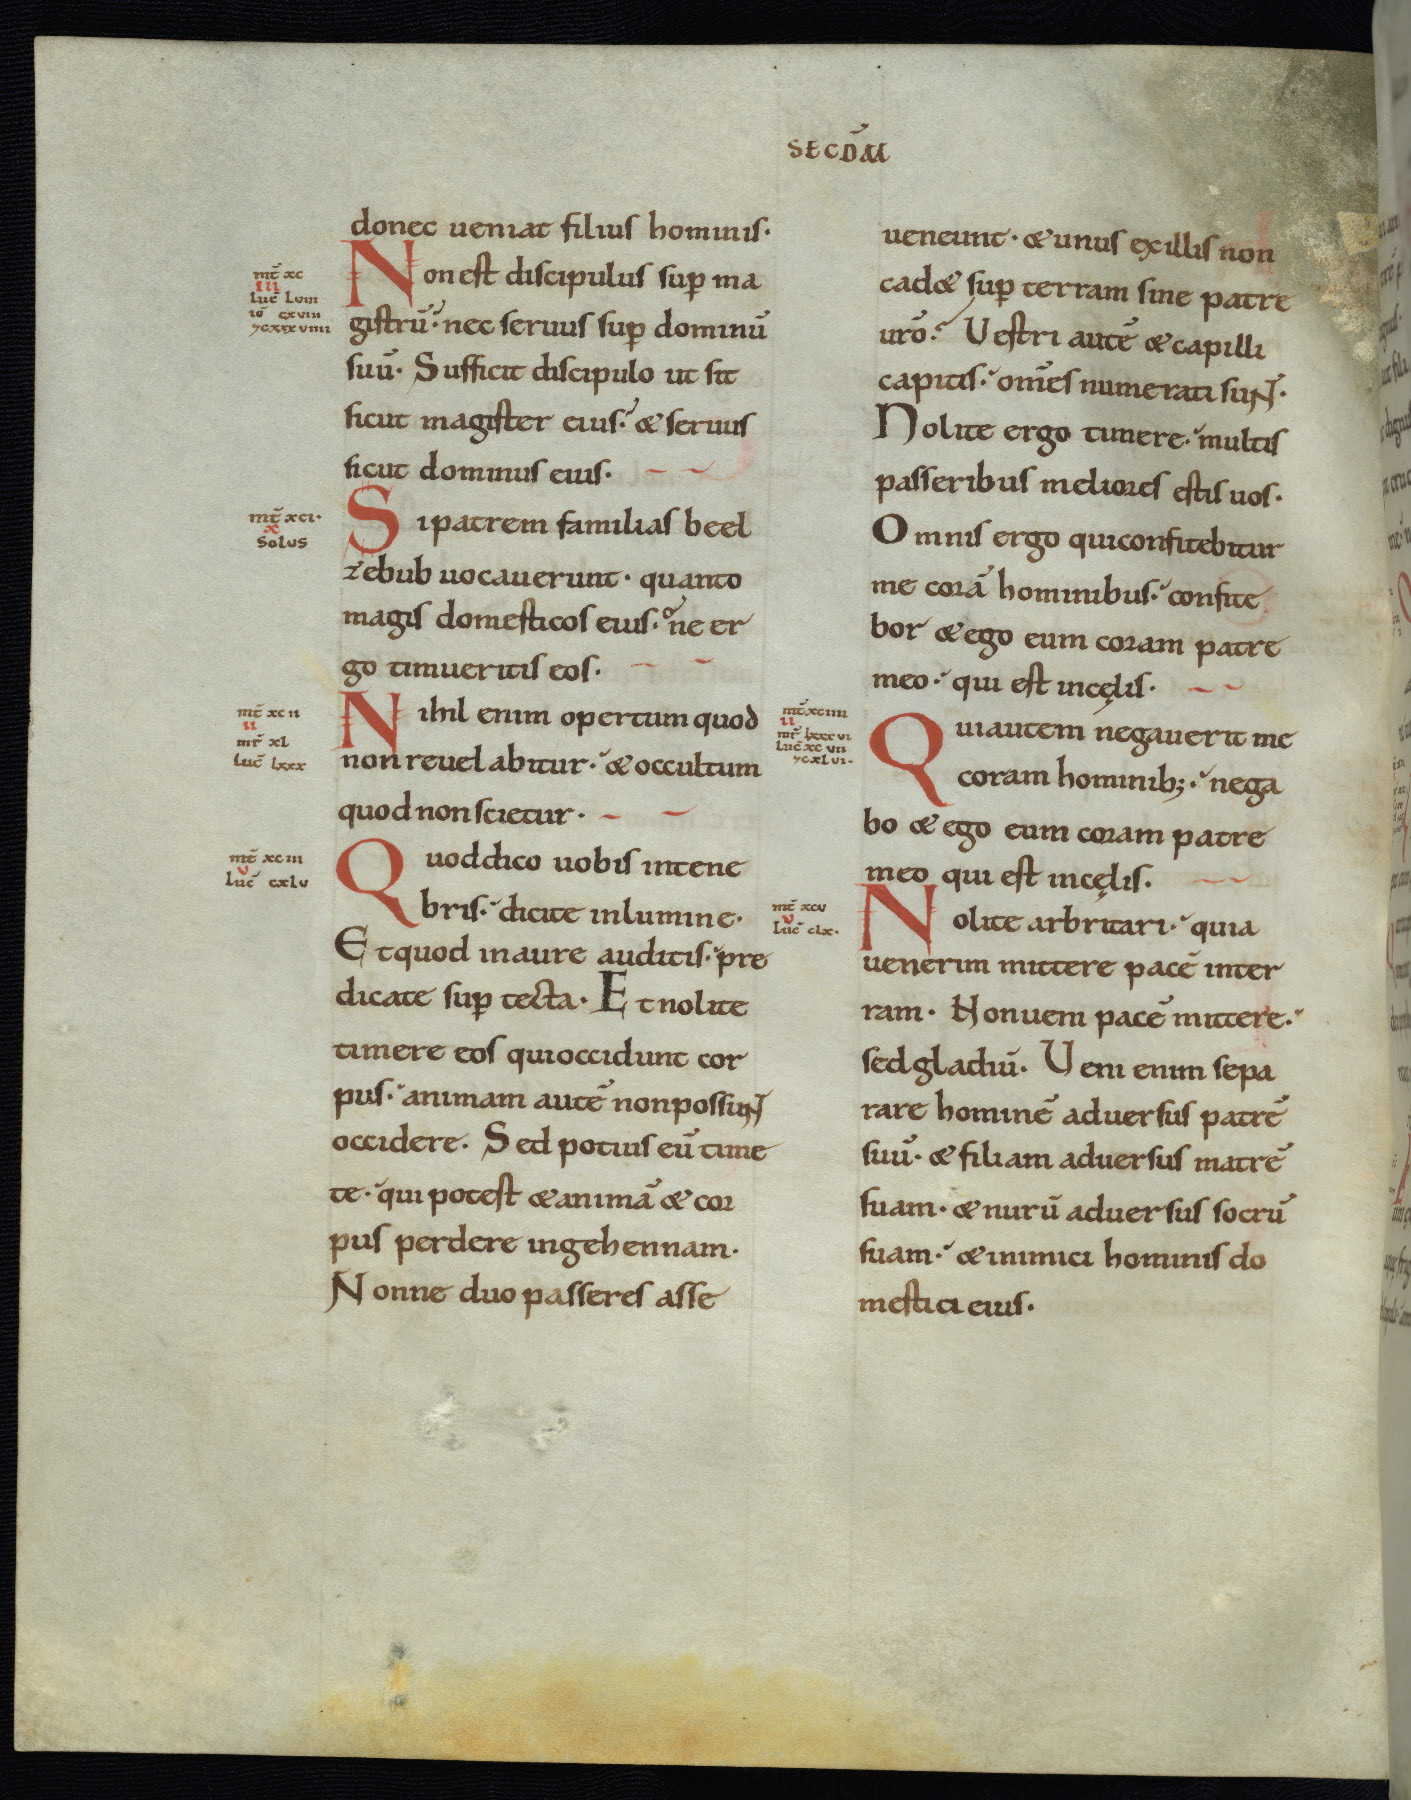 SECDM̄
donec ueniat filius hominis·
Non est discipulus sup̄ ma
gistrū· nec seruus sup̄ dominū
suū· Sufficit discipulo ut sit
sicut magister eius· & seruus
sicut dominus eius·
Si patrem familias beel
zebub uocauerunt· quanto
magis domesticos eius· ne er
go timueritis eos·
Nihil enim opertum quod
non reuelabitur· & occultum
quod non scietur·
Quod dico uobis in tene
bris· dicite in lumine·
Et quod in aure auditis· pre
dicate sup̄ tecta· Et nolite
timere eos qui occidunt cor
pus· animam autē non possunt
occidere· Sed potius eū time
te· qui potest & animā & cor
pus perdere in gehennam·
Nonne duo passeres asse
mt̄ xc
III
luc̄ lviii
io̅ cxviii
⁊cxxxviiii
mt̄ xci·
x
solus
mt̄ xcii
II
mr̄ xl
luc̄ lxxx
mt̄ xciii
v
luc̄ cxlv
ueneunt· & unus ex illis non
cad& sup̄ terram sine patre
urō· Uestri autē & capilli
capitis· om̄es numerati sunt·
Nolite ergo timere· multis
passeribus meliores estis uos·
Omnis ergo qui confitebitur
me corā hominibus· confite
bor & ego eum coram patre
meo· qui est in cęlis·
Qui autem negauerit me
coram hominib;· nega
bo & ego eum coram patre
meo qui est in cęlis·
Nolite arbritari· quia
uenerim mittere pacē in ter
ram· Non ueni pacē mittere·
sed gladiū· Ueni enim sepa
rare hominē aduersus patrē
suū· & filiam aduersus matrē
suam· & nurū aduersus socrū
suam· & inimici hominis do
mestici eius·
mt̄ xciiii
II
mr̄ lxxxvi
luc̄ xcvii
⁊cxlvi·
mt̄ xcv
v
luc̄ clx·